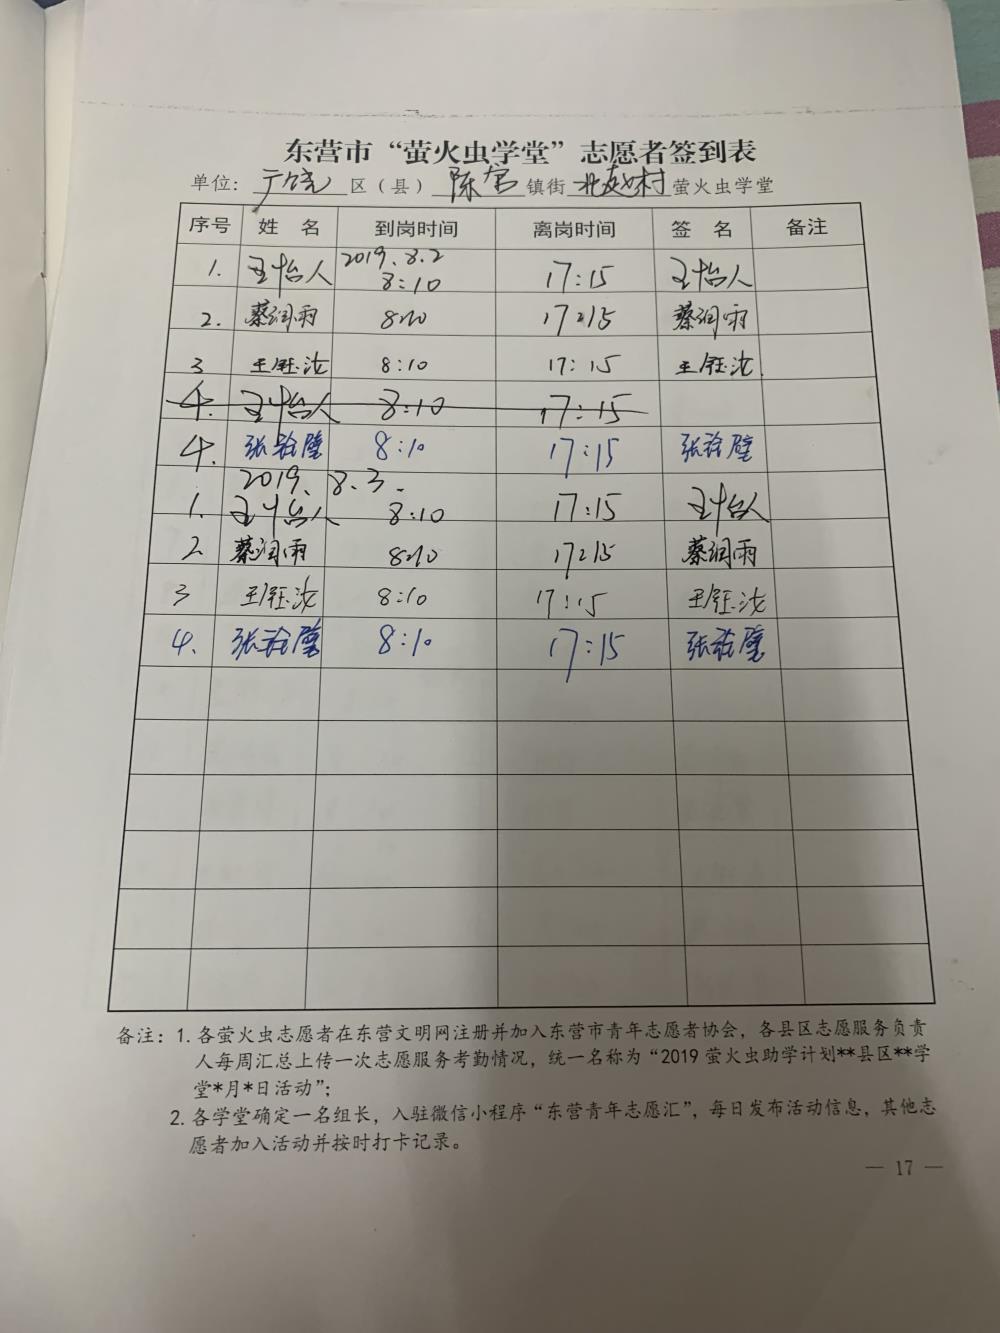 东营市“萤火虫学堂”志愿者签到表
单位：广饶区（县）陈官镇街北赵村萤火虫学堂
序号 姓 名 到岗时间 离岗时间 签 名 备注
2019.8.2
1. 王怡人 8:10 17:15 王怡人
2. 蔡润雨 8:10 17:15 蔡润雨
3 王钰汝 8:10 17:15 王钰汝
4. 王怡人 8:10 17:15
4. 张 8:10 17:15 张
2019.8.3.
1. 王怡人 8:10 17:15 王怡人
2 蔡润雨 8:10 17:15 蔡润雨
3 王钰汝 8:10 17:15 王钰汝
4. 张 8:10 17:15 张
备注：1. 各萤火虫志愿者在东营文明网注册并加入东营市青年志愿者协会，各县区志愿服务负责
人每周汇总上传一次志愿服务考勤情况，统一名称为“2019 萤火虫助学计划**县区**学
堂*月*日活动”；
2. 各学堂确定一名组长，入驻微信小程序“东营青年志愿汇”，每日发布活动信息，其他志
愿者加入活动并按时打卡记录。
— 17 —